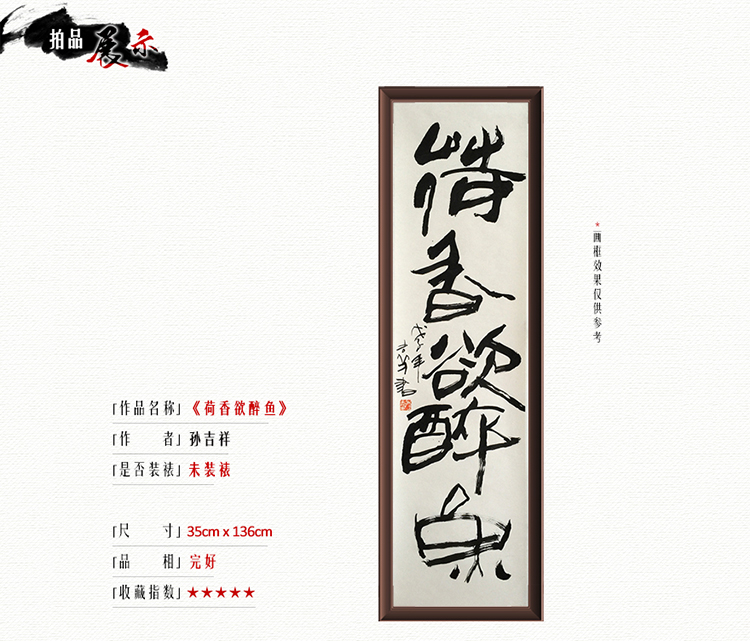 拍品展示
荷香欲醉鱼
戊子年
吉祥书
*画框效果仅供参考
「作品名称」《荷香欲醉鱼》
「作 者」孙吉祥
「是否装裱」未装裱
「尺 寸」35cm x 136cm
「品 相」完好
「收藏指数」★★★★★